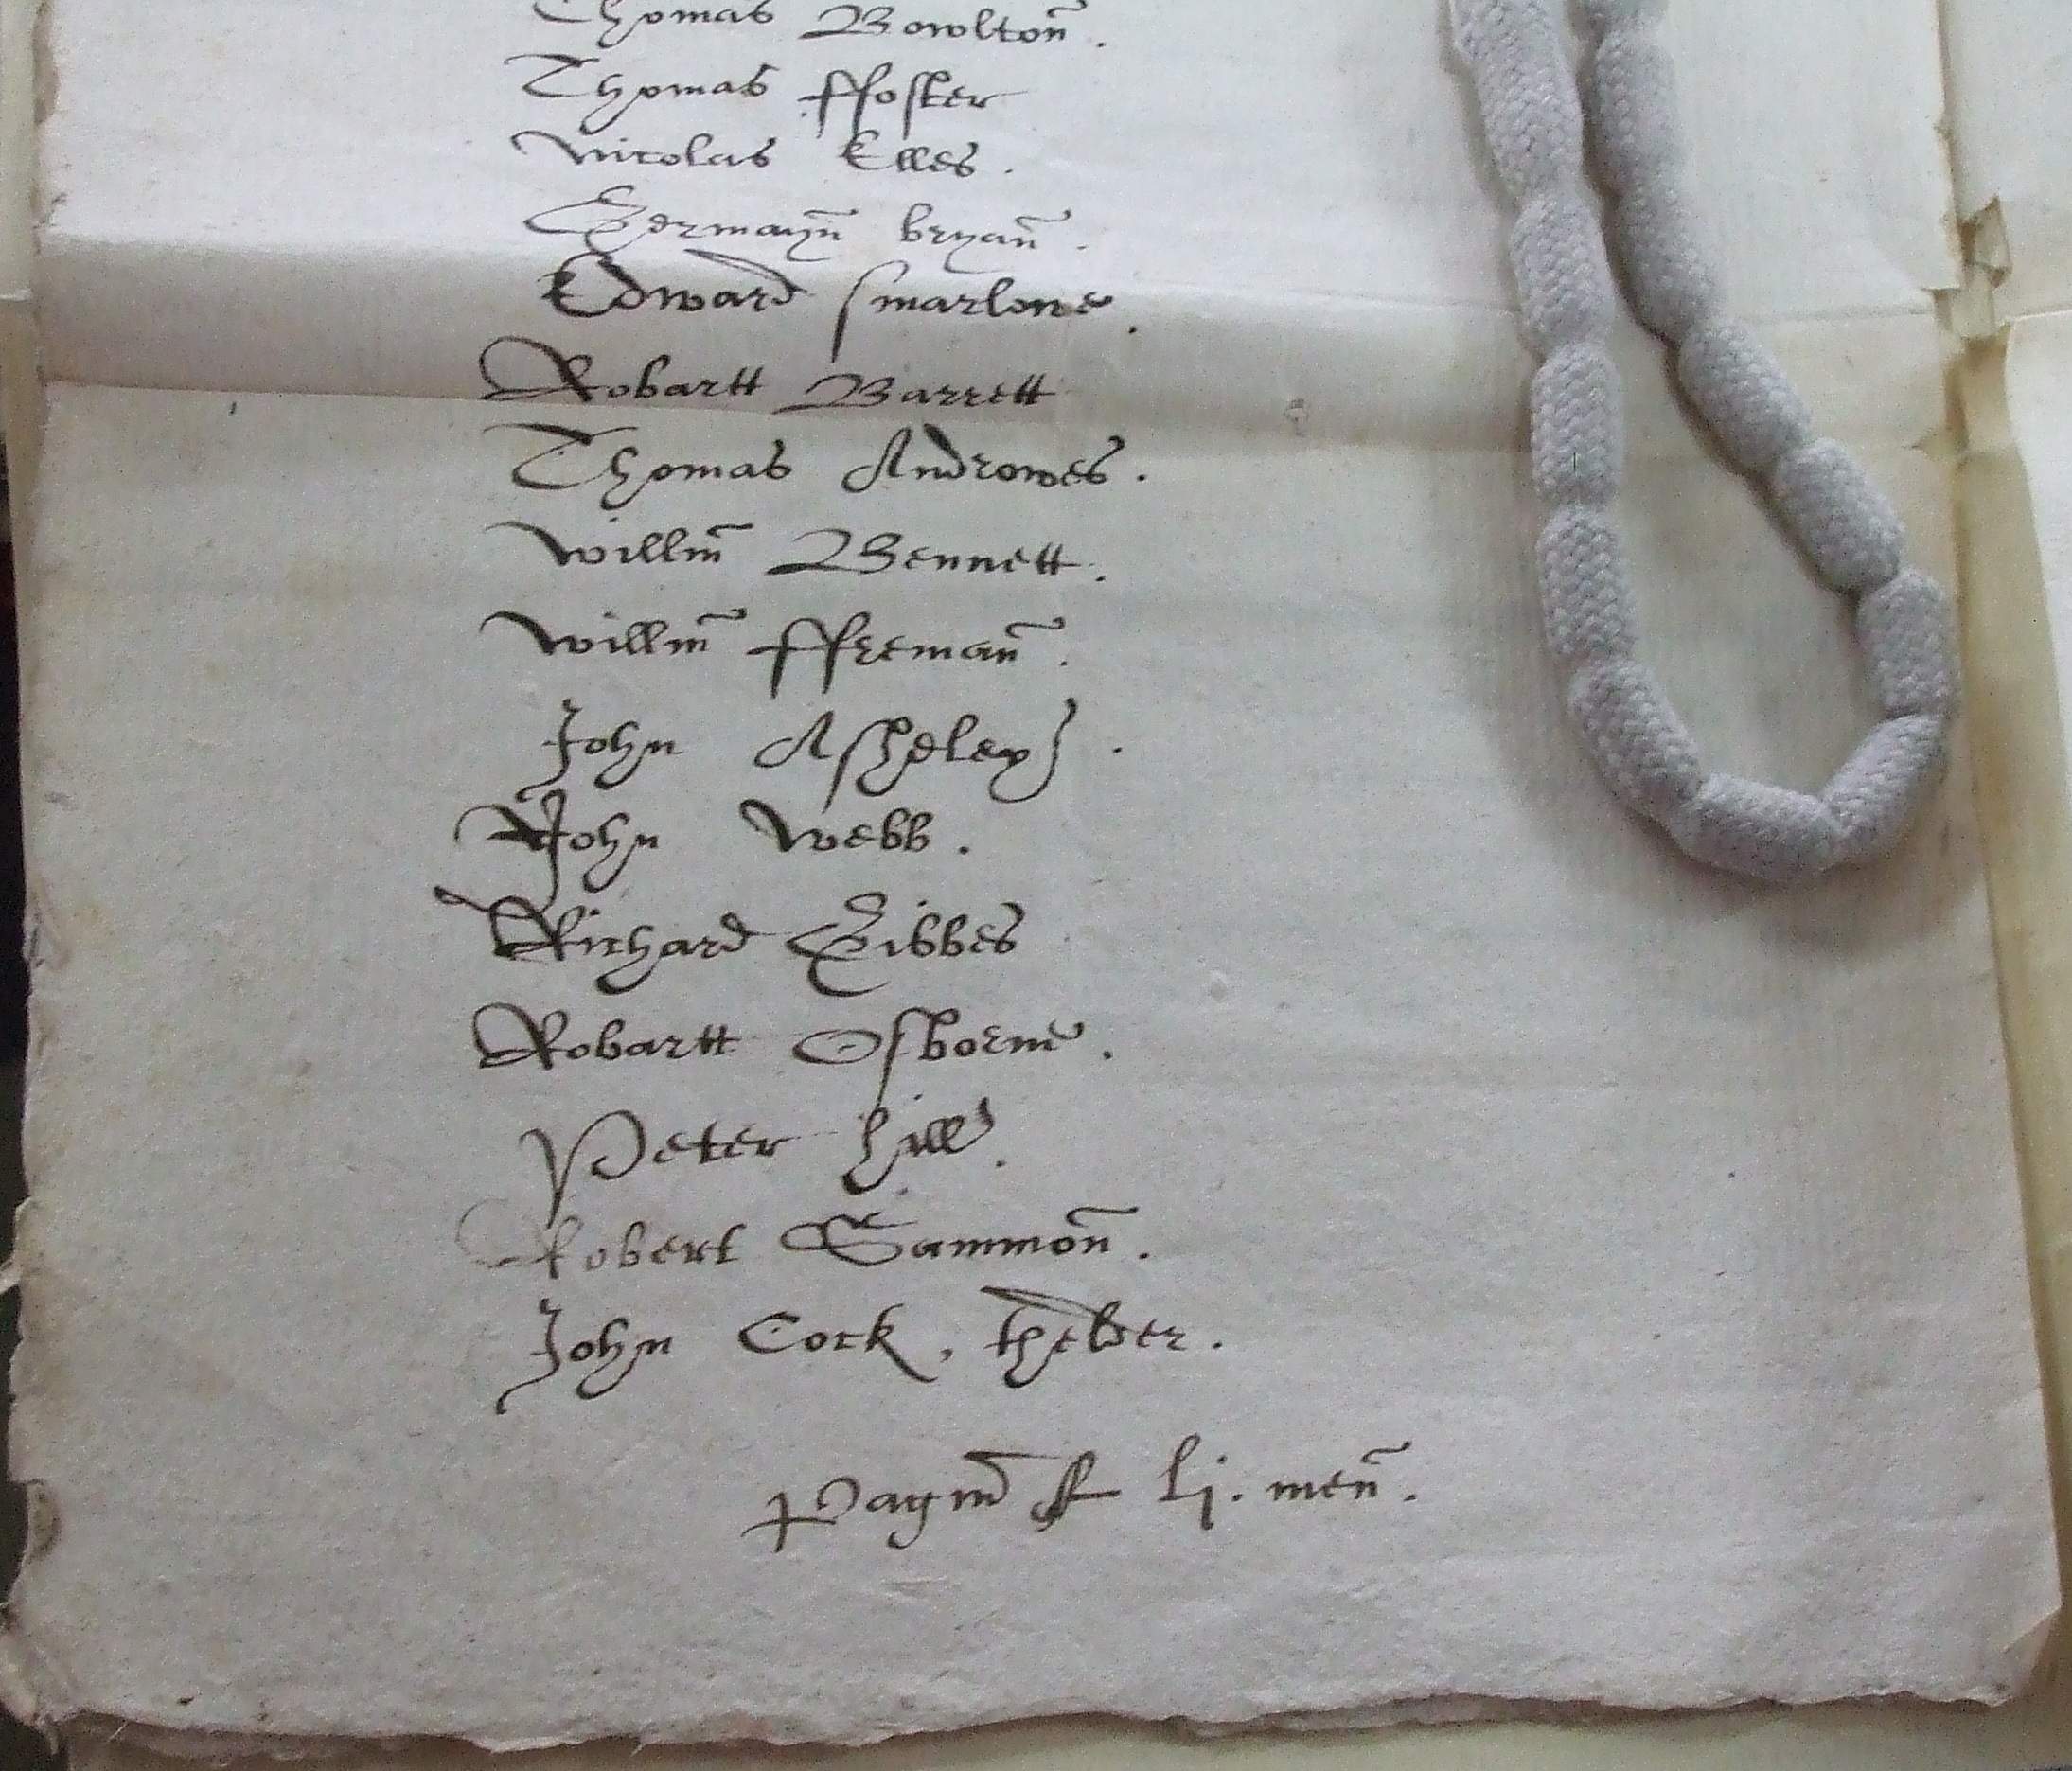 Thomas Bowltoñ .
Thomas ffoster
Nicolas Elles .
Germayñ bryañ .
Edward Smarlone .
Robartt Barrett
Thomas Androwes .
Willm̃ Bennett .
Willm̃ ffremañ .
John Asheley .
John Webb .
Richard Gibbes
Robartt Osborne .
Peter hill .
Robert Sammoñ .
John Cock , thelder .
lj . meñ .